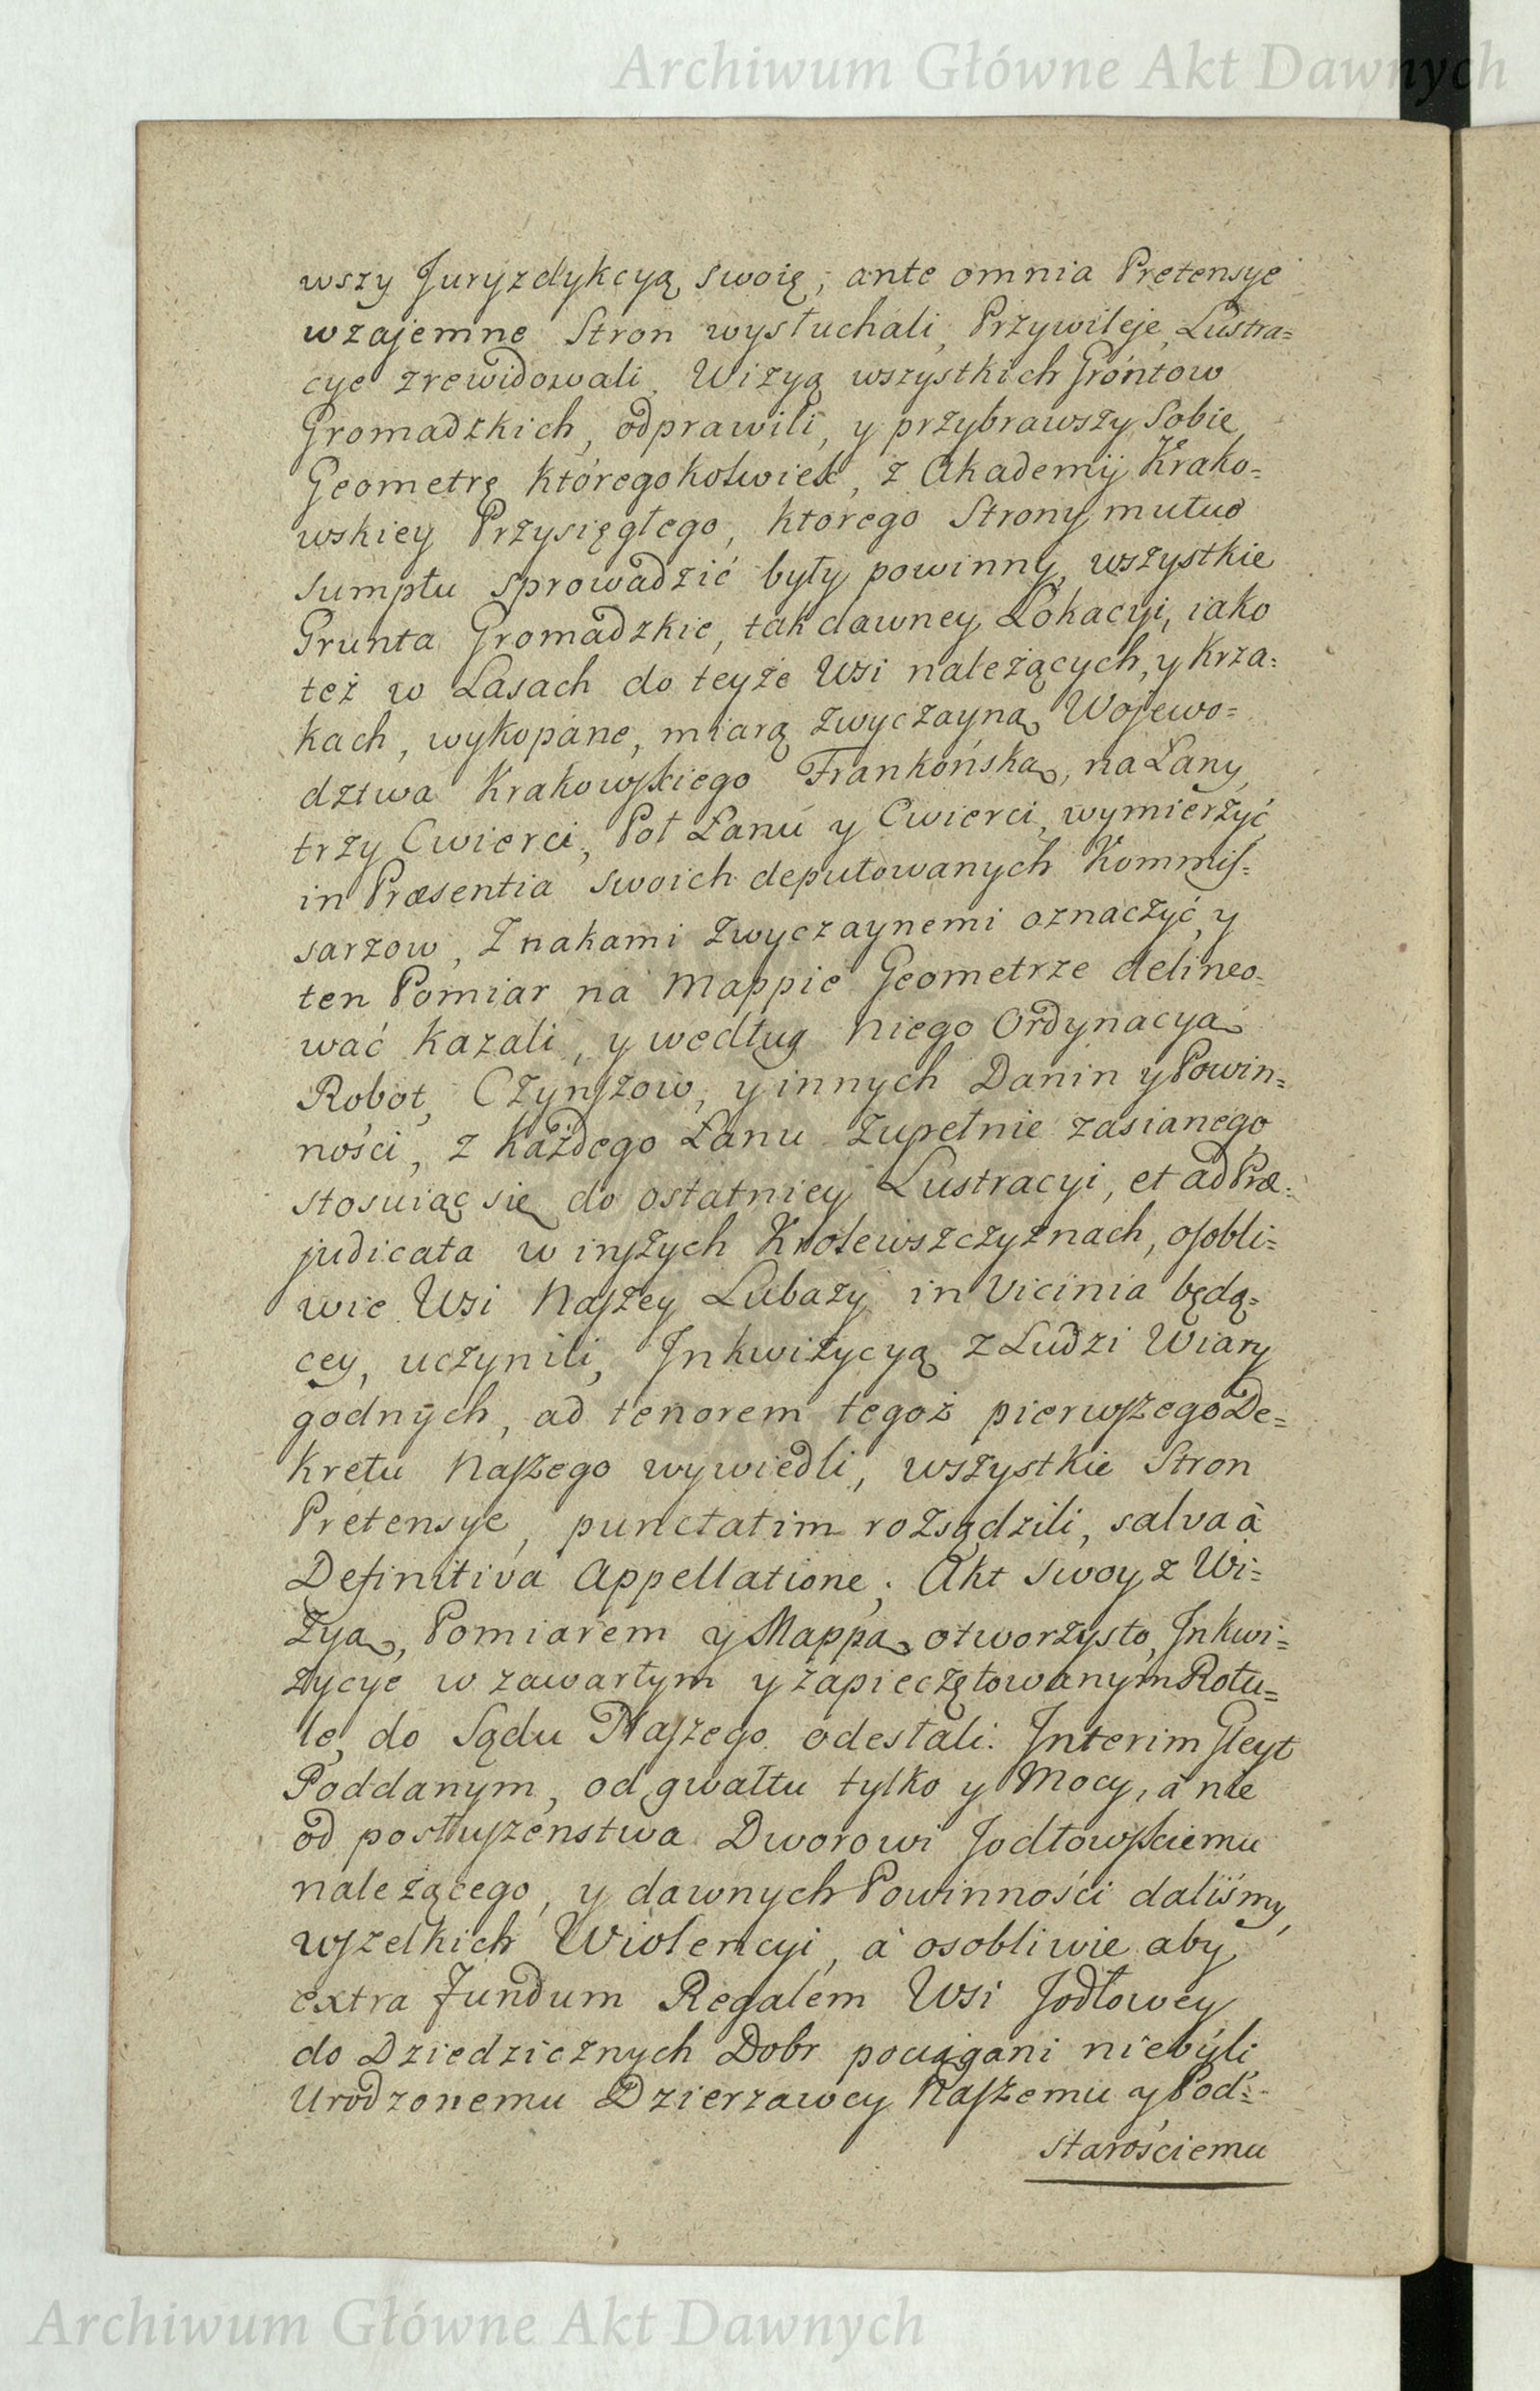 Archiwum Główne Akt Dawnych
wszy Juryzdykcyą swoię, ante omnia Pretensye
wzajemne Stron wysłuchali, Przywileje, Lustra=
cye zrewidowali, Wizyą wszystkich Gróntow
Gromadzkich, odprawili, y przybrawszy Sobie
Geometrę któregokolwiek, z Akademij Krako=
wskiey Przysięgłego, ktorego Strony mutuo
sumptu sprowadzić były powinny, wszystkie
Grunta Gromadzkie, tak dawney Lokacyi, iako
też w Lasach do teyże Wsi należących, y Krza=
kach, wykopane, miarą zwyczayną Wojewo=
dztwa Krakowskiego Frankońską, na Łany,
trzy Cwierci, Poł Łanu y Cwierci, wymierzyć
in Præsentia swoich deputowanych Kommis=
sarzow, Znakami zwyczaynemi oznaczyć, y
ten Pomiar na Mappie Geometrze delineo=
wać kazali, y według niego Ordynacyą
Robot, Czynszow, y innych Danin y Powin=
ności, z każdego Łanu zupełnie zasianego,
stosuiąc się do ostatniey Lustracyi, et ad Præ=
judicata w inszych Krolewszczyznach, osobli=
wie Wsi Naszey Lubaży in Vicinia będą=
cey, uczynili, Inkwizycyą z Ludzi Wiary
godnych, ad tenorem tegoż pierwszego De=
kretu Naszego wywiedli, wszystkie Stron
Pretensye, punctatim rozsądzili, salva à
Definitiva Appellatione; Akt swoy z Wi=
zyą, Pomiarem y Mappą otworzysto, Inkwi=
zycye w zawartym y zapieczętowanym Rotu=
le, do Sądu Naszego odesłali. Interim Gleyt
Poddanym, od gwałtu tylko y Mocy, à nie
od posłuszenstwa Dworowi Jodłowskiemu
należącego, y dawnych Powinności daliśmy,
wszelkich Wiolencyi, à osobliwie aby
extra Fundum Regalem Wsi Jodłowey
do Dziedzicznych Dobr pociągani niebyli,
Urodzonemu Dzierzawcy Naszemu y Pod=
starościemu
Archiwum Główne Akt Dawnych